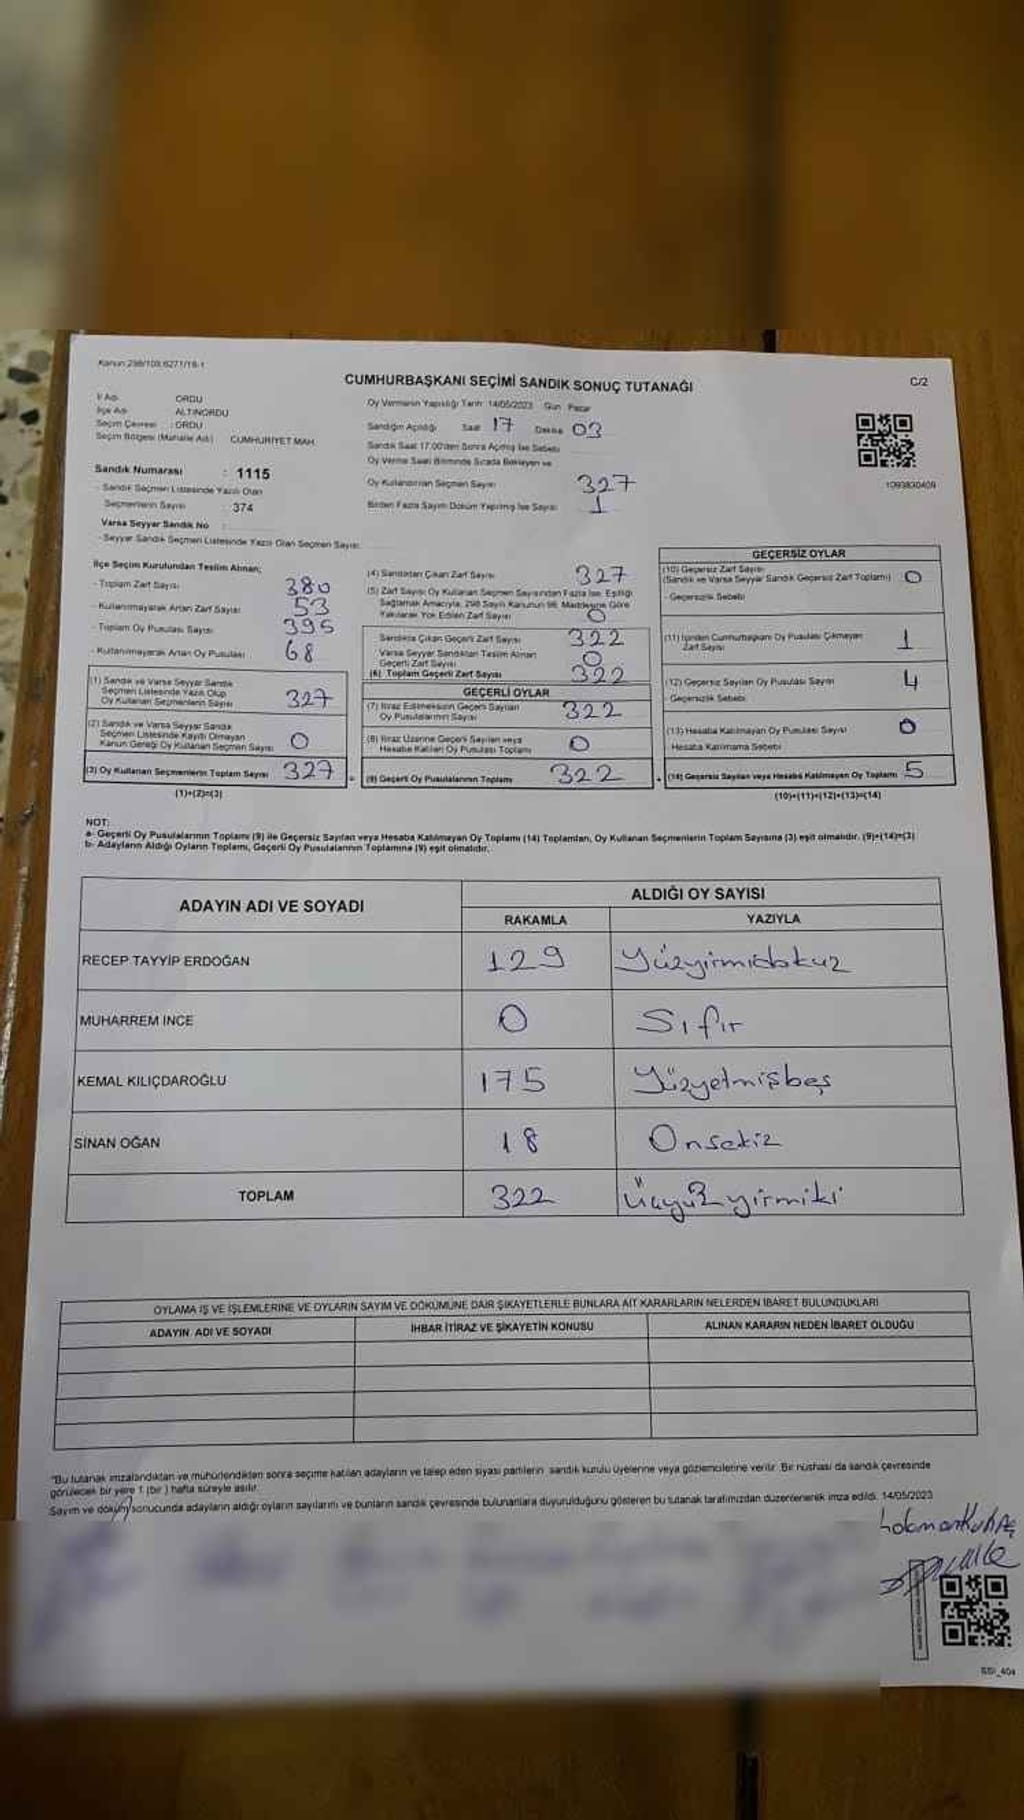 Kanun:298/105;6271/18-1
CUMHURBAŞKANI SEÇİMİ SANDIK SONUÇ TUTANAĞI
C/2
İl Adı ORDU
İlçe Adı ALTINORDU
Seçim Çevresi : ORDU
Seçim Bölgesi (Mahalle Adı) CUMHURİYET MAH.
Sandık Numarası : 1115
- Sandık Seçmen Listesinde Yazılı Olan
Seçmenlerin Sayısı : 374
Varsa Seyyar Sandık No :
- Seyyar Sandık Seçmen Listesinde Yazılı Olan Seçmen Sayısı
Oy Vermenin Yapıldığı Tarih 14/05/2023 Gün Pazar
Sandığın Açıldığı Saat 17 Dakika 03
Sandık Saat 17.00'den Sonra Açılmış İse Sebebi
Oy Verme Saati Bitiminde Sırada Bekleyen ve
Oy Kullandırılan Seçmen Sayısı 327
Birden Fazla Sayım Döküm Yapılmış İse Sayısı 1
1093830409
İlçe Seçim Kurulundan Teslim Alınan;
- Toplam Zarf Sayısı 380
- Kullanılmayarak Artan Zarf Sayısı 53
- Toplam Oy Pusulası Sayısı 395
- Kullanılmayarak Artan Oy Pusulası 68
(1) Sandık ve Varsa Seyyar Sandık
Seçmen Listesinde Yazılı Olup
Oy Kullanan Seçmenlerin Sayısı 327
(2) Sandık ve Varsa Seyyar Sandık
Seçmen Listesinde Kayıtlı Olmayan
Kanun Gereği Oy Kullanan Seçmen Sayısı 0
(3) Oy Kullanan Seçmenlerin Toplam Sayısı 327
(1)+(2)=(3)
(4) Sandıktan Çıkan Zarf Sayısı 327
(5) Zarf Sayısı Oy Kullanan Seçmen Sayısından Fazla İse, Eşitliği
Sağlamak Amacıyla, 298 Sayılı Kanunun 98. Maddesine Göre
Yakılarak Yok Edilen Zarf Sayısı 0
Sandıkta Çıkan Geçerli Zarf Sayısı 322
Varsa Seyyar Sandıktan Teslim Alınan
Geçerli Zarf Sayısı 0
(6) Toplam Geçerli Zarf Sayısı 322
GEÇERLİ OYLAR
(7) İtiraz Edilmeksizin Geçerli Sayılan
Oy Pusulalarının Sayısı 322
(8) İtiraz Üzerine Geçerli Sayılan veya
Hesaba Katılan Oy Pusulası Toplamı 0
(9) Geçerli Oy Pusulalarının Toplamı 322
GEÇERSİZ OYLAR
(10) Geçersiz Zarf Sayısı
(Sandık ve Varsa Seyyar Sandık Geçersiz Zarf Toplamı) 0
- Geçersizlik Sebebi
(11) İçinden Cumhurbaşkanı Oy Pusulası Çıkmayan
Zarf Sayısı 1
(12) Geçersiz Sayılan Oy Pusulası Sayısı 4
- Geçersizlik Sebebi
(13) Hesaba Katılmayan Oy Pusulası Sayısı 0
Hesaba Katılmama Sebebi
(14) Geçersiz Sayılan veya Hesaba Katılmayan Oy Toplamı 5
(10)+(11)+(12)+(13)=(14)
NOT:
a- Geçerli Oy Pusulalarının Toplamı (9) ile Geçersiz Sayılan veya Hesaba Katılmayan Oy Toplamı (14) Toplamları, Oy Kullanan Seçmenlerin Toplam Sayısına (3) eşit olmalıdır. (9)+(14)=(3)
b- Adayların Aldığı Oyların Toplamı, Geçerli Oy Pusulalarının Toplamına (9) eşit olmalıdır.
ADAYIN ADI VE SOYADI ALDIĞI OY SAYISI
RAKAMLA YAZIYLA
RECEP TAYYİP ERDOĞAN 129 Yüzyirmidokuz
MUHARREM İNCE 0 Sıfır
KEMAL KILIÇDAROĞLU 175 Yüzyetmişbeş
SİNAN OĞAN 18 Onsekiz
TOPLAM 322 Üçyüzyirmiki
OYLAMA İŞ VE İŞLEMLERİNE VE OYLARIN SAYIM VE DÖKÜMÜNE DAİR ŞİKAYETLERLE BUNLARA AİT KARARLARIN NELERDEN İBARET BULUNDUKLARI
ADAYIN ADI VE SOYADI İHBAR İTİRAZ VE ŞİKAYETİN KONUSU ALINAN KARARIN NEDEN İBARET OLDUĞU
"Bu tutanak imzalandıktan ve mühürlendikten sonra seçime katılan adayların ve talep eden siyasi partilerin sandık kurulu üyelerine veya gözlemcilerine verilir. Bir nüshası da sandık çevresinde
görülecek bir yere 1 (bir) hafta süreyle asılır.
Sayım ve döküm sonucunda adayların aldığı oyların sayılarını ve bunların sandık çevresinde bulunanlara duyurulduğunu gösteren bu tutanak tarafımızdan düzenlenerek imza edildi. 14/05/2023